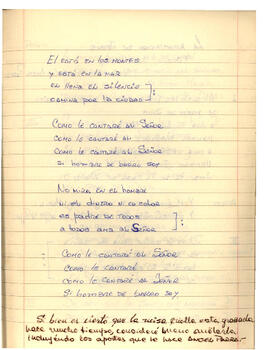 El está en los montes
y está en la mar
el llena el silencio
camina por la ciudad
Como le cantaré al Señor
Como le cantaré al
Como le cantaré al Señor
si hombre de barro soy
No mira en el hombre
ni el dinero ni color
es padre de todos
a todos ama el Señor
Como le cantaré al Señor
Como le cantaré
Como le cantaré al Señor
Si hombre de barro soy
Si bien es cierto que la misa quella esta grabada
hace mucho tiempo, considero bueno
incluyendo los aportes que le hace